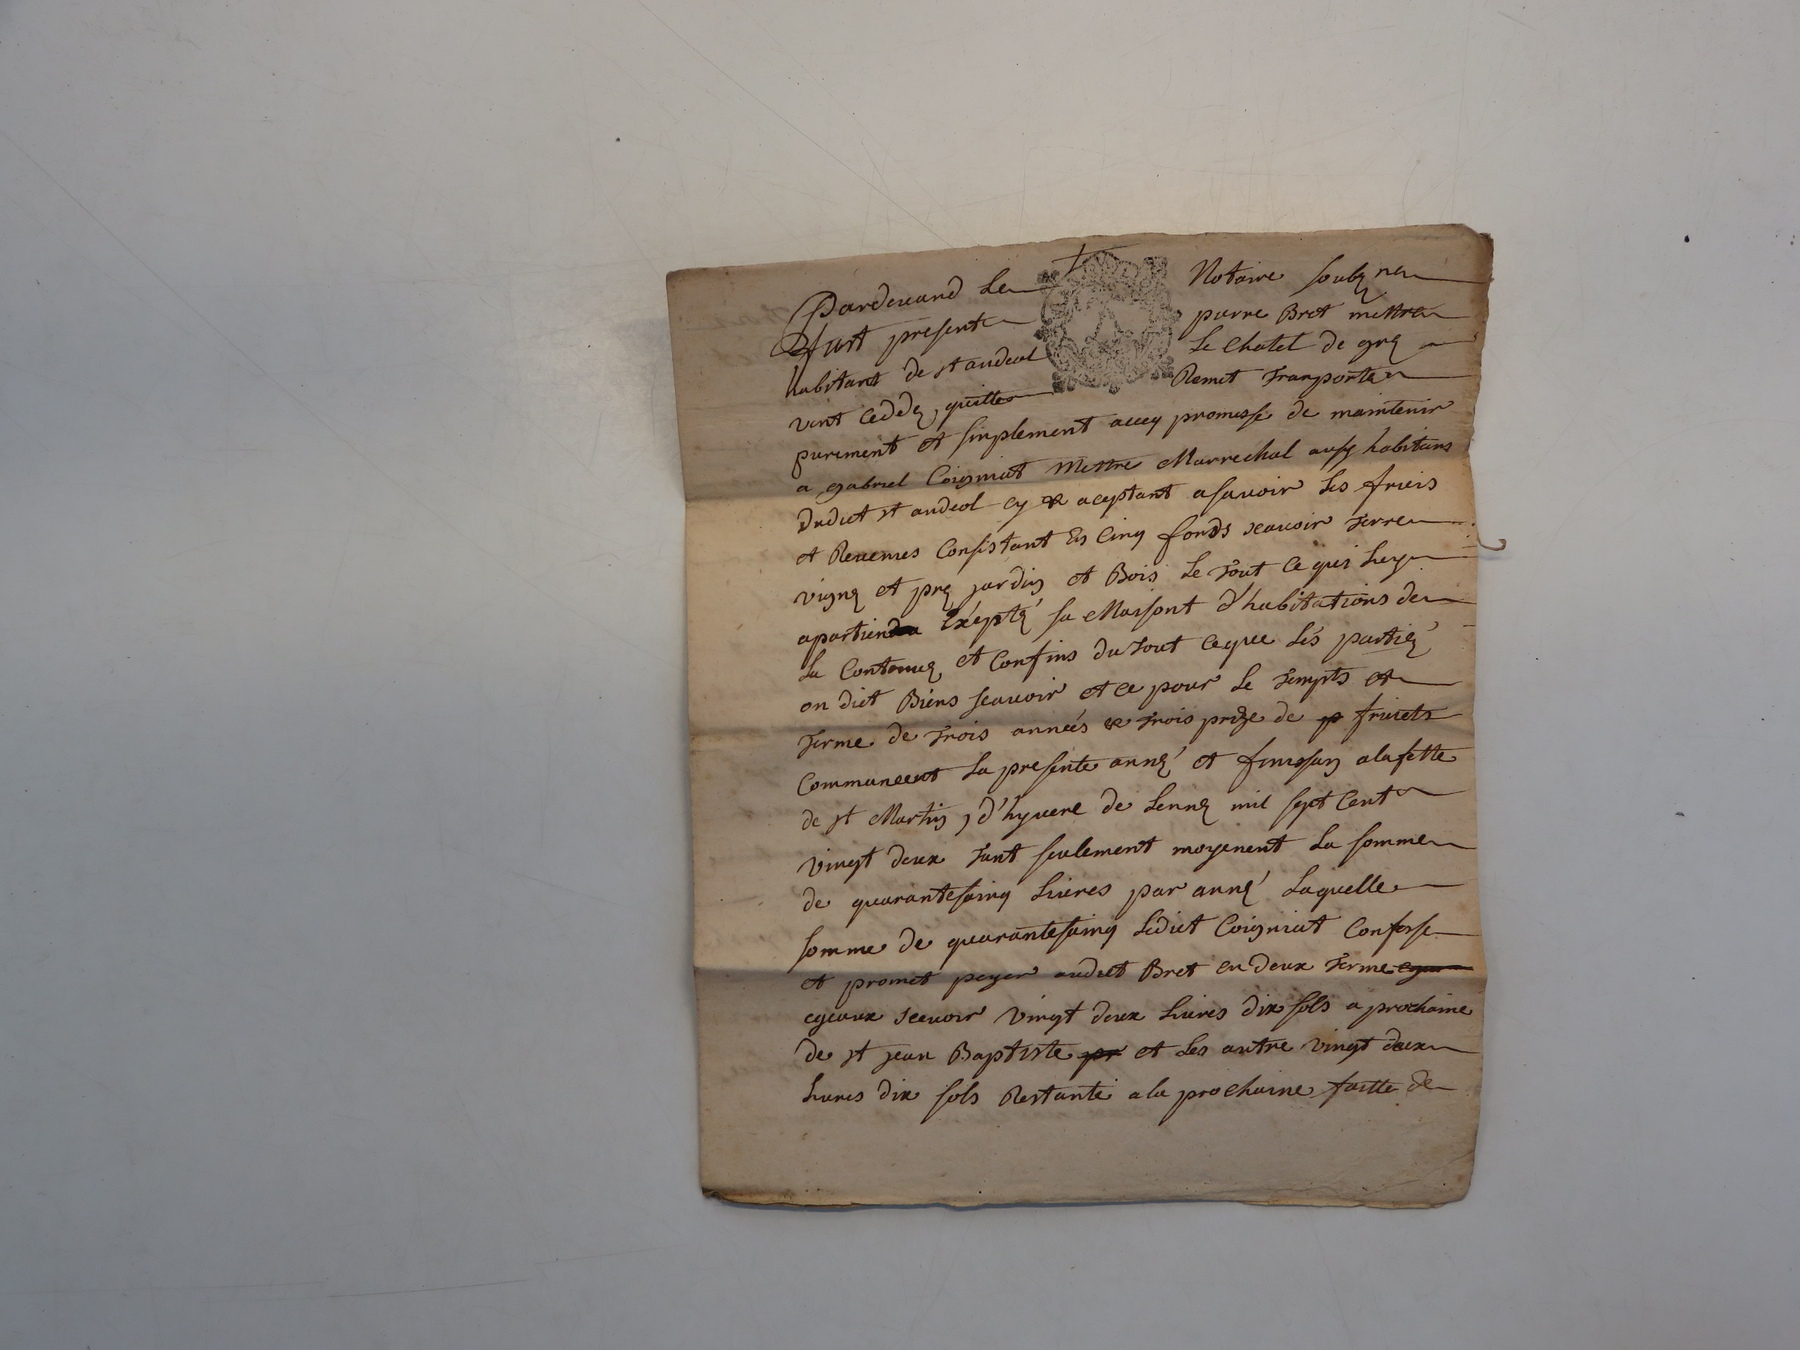 Pardevand Le Notaire soubz ne
fust present pierre Bret mettre
habitant de st andeol Le Chatel de gré
vint ceddé, quitte Remet Transporte
purement et simplement avec promesse de maintenir
a gabriel Coigniat Mettre Marrechal aussy habitans
dudict st andeol cy et aceptant a savoir Les fruis
et Revenus Consistant En Cinq fonds scavoir Terre
vigne et pré jardin et Bois Le Tout Ce qui Luy
apartien Exépté sa Maisont d'habitations de
La Contenue et Confins du Tout Ceque Lés partié
on dict Biens scavoir et ce pour Le Tempts et
Terme de Trois années et Trois prize de fruicts
Commanceent La presente anné et finissan a la fette
de st Martin, d'hyvere de Lenné mil sept Cent
vingt deux Tant seulement moyenent La somme
de quarantesainq Livres par anné Laquelle
somme de quarantesainq Ledict Coigniat Confesse
et promet peyer audict Bret en deux Terme
egeaux scevoir vingt deux Livres dix sols a prochaine
de st jean Baptiste et Les antre vingt deux
Livres dix sols Restante a la prochaine faitte de